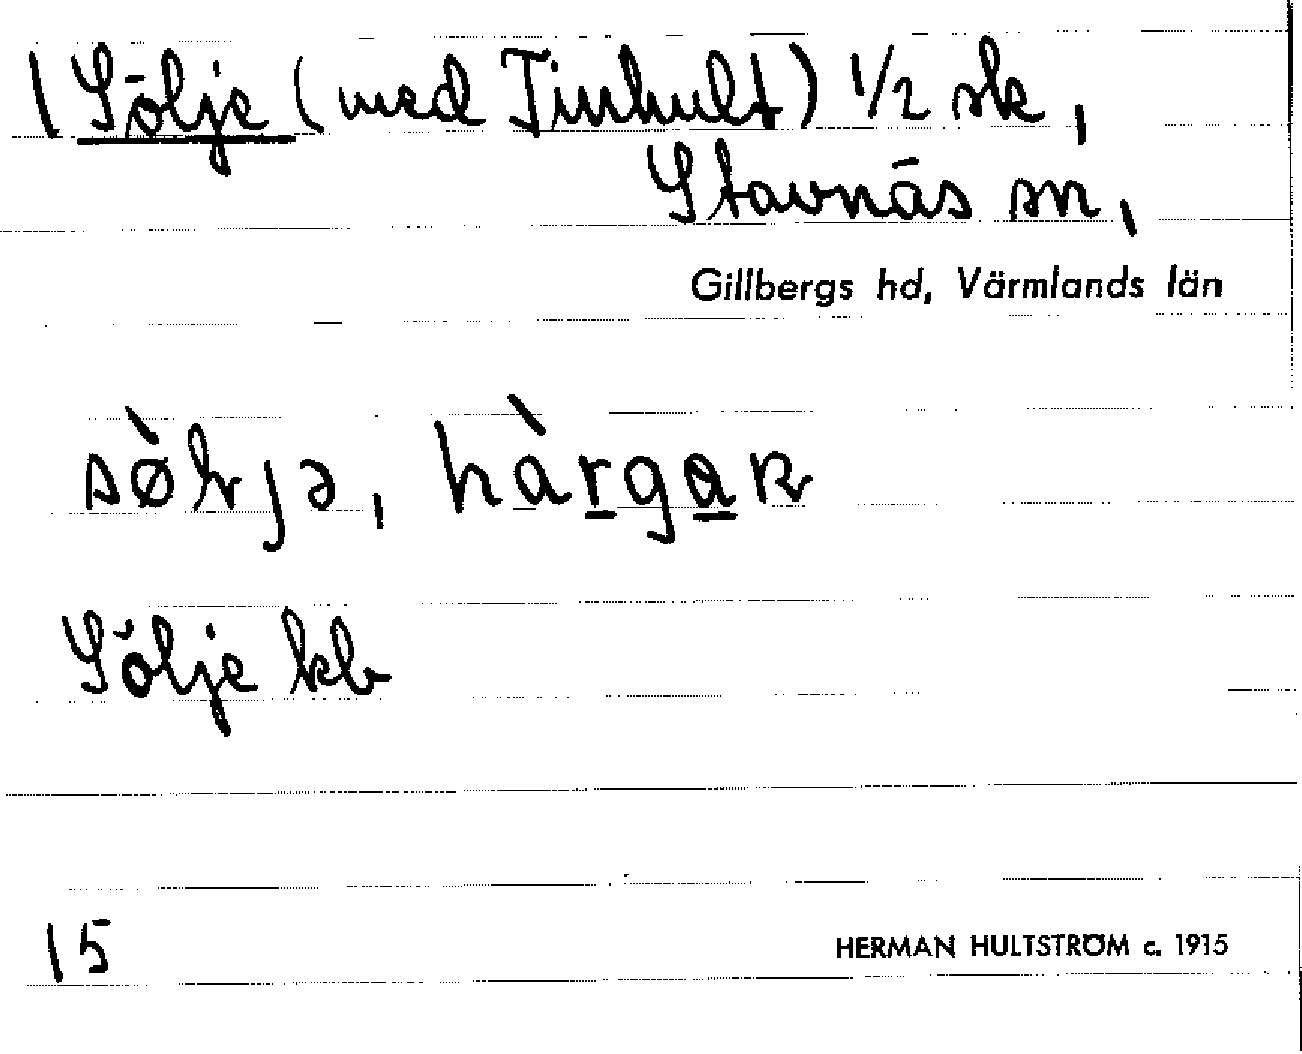 1 Sölje (med Tinhult) 1/2 sk,
Stavnäs sn,
Gillbergs hd, Värmlands län
sø̀lja, hàrgaʀ
Sölje kb
15
HERMAN HULTSTRÖM c. 1915